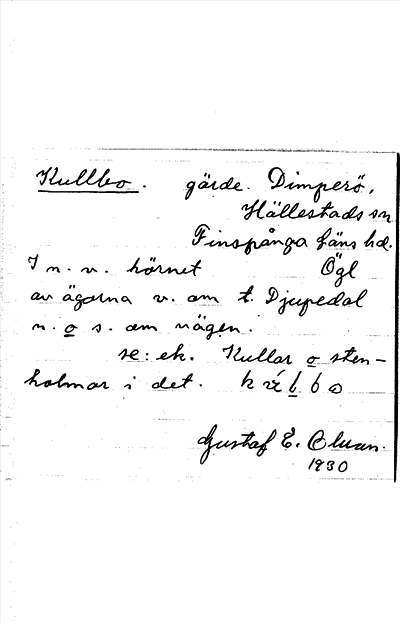 Kullbo. gärde. Dimperö,
Hällestads sn
Finspånga läns hd.
I n. v. hörnet Ögl
av ägorna v. om t. Djupedal
n. o s. om vägen.
se: ek. Kullar o sten-
holmar i det.
Gustaf E. Olsson.
1930